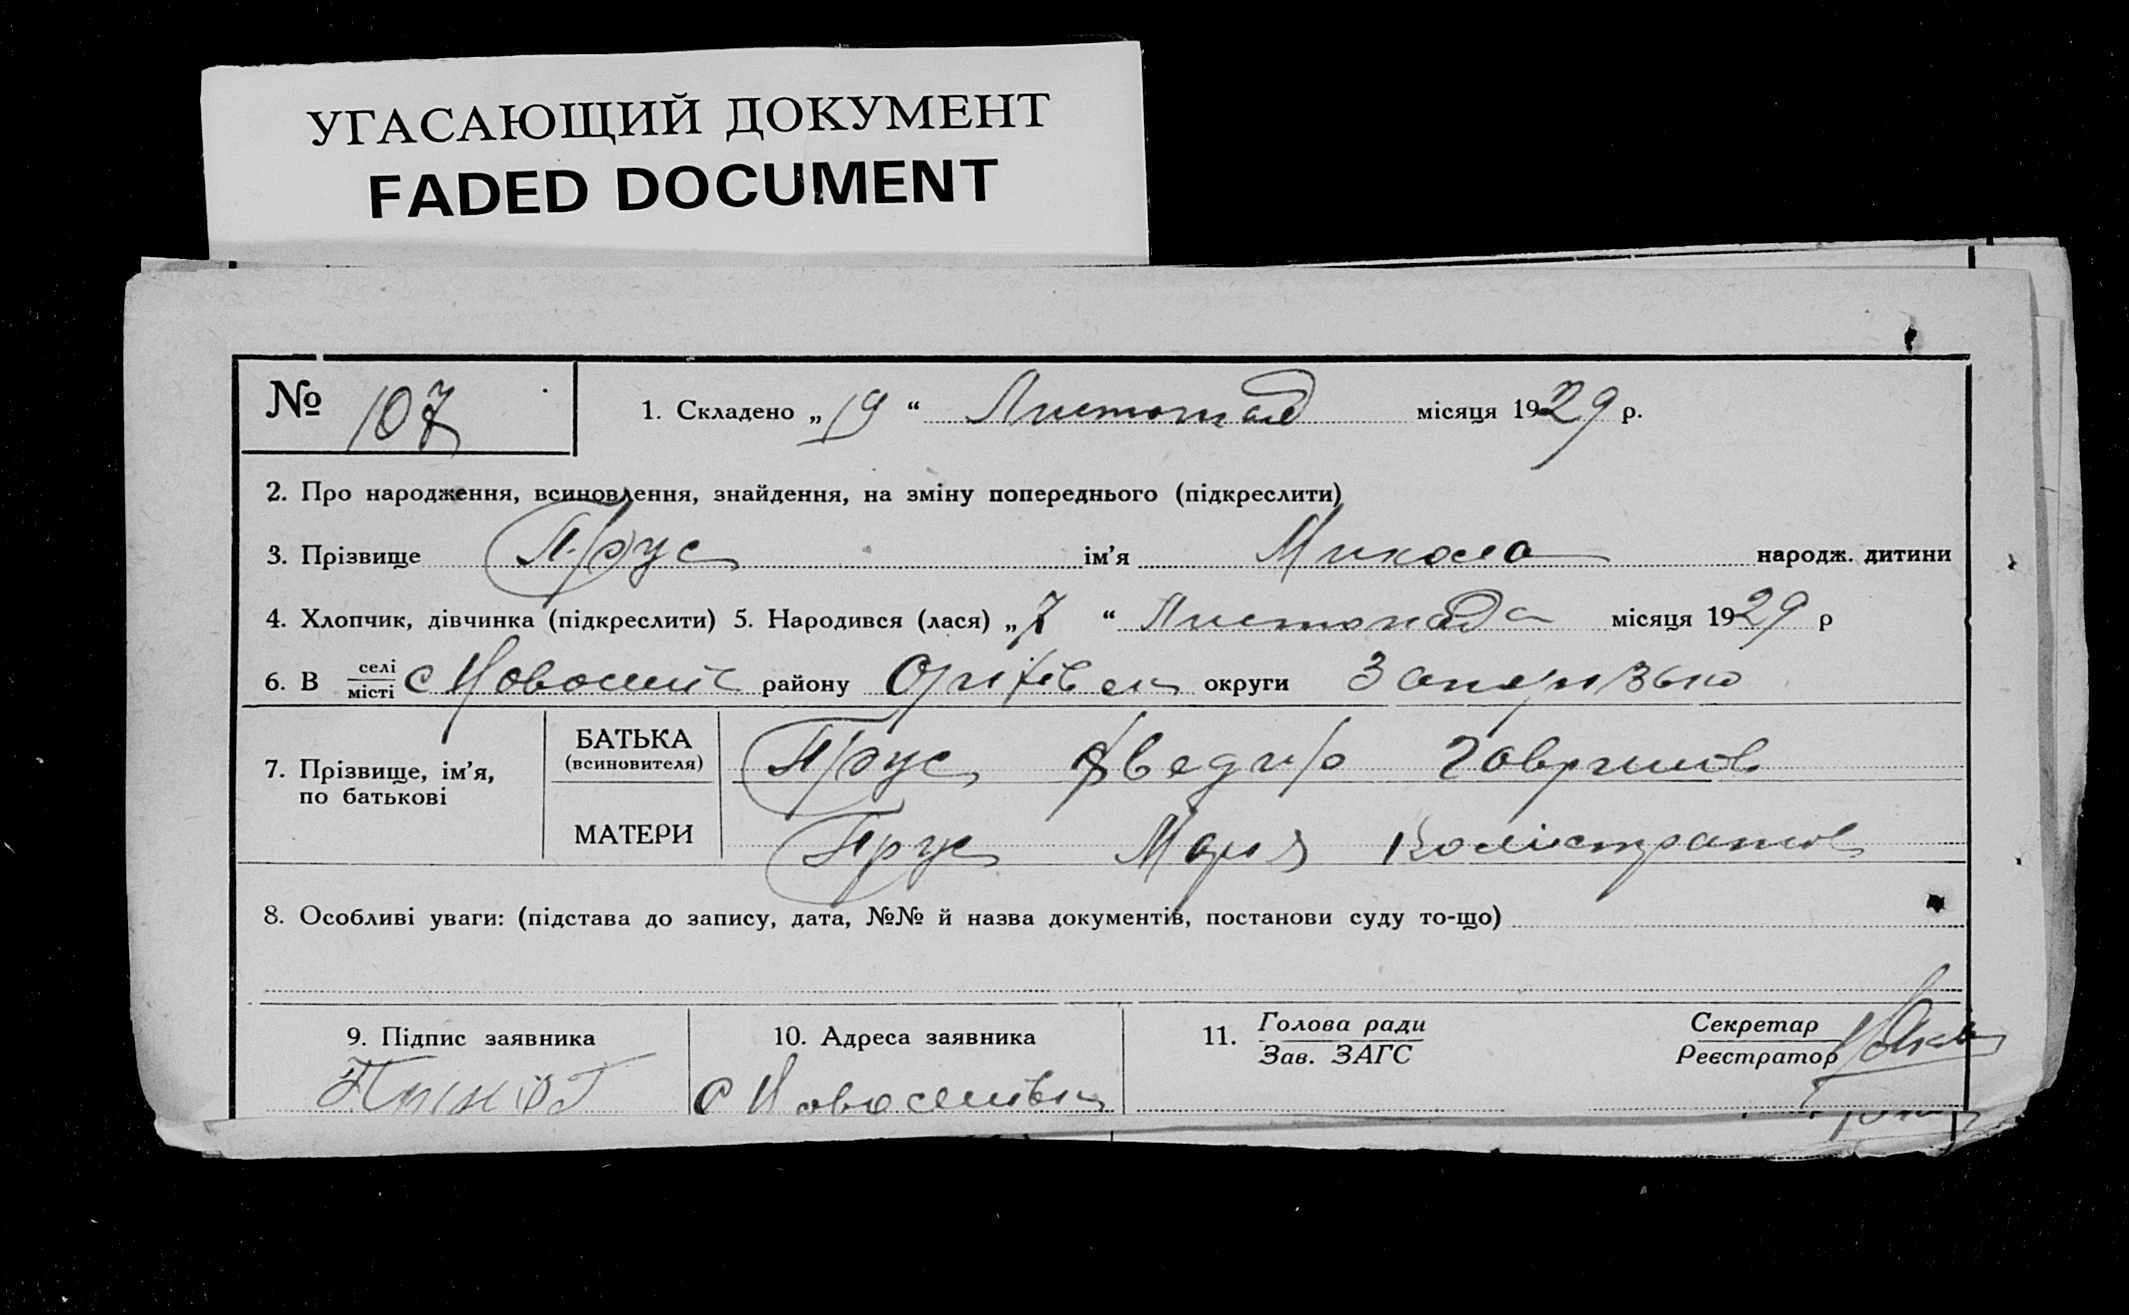 УГАСАЮЩИЙ ДОКУМЕНТ
FADED DOCUMENT
№ 107
1. Складено „19“ Листопад місяця 1929 р.
2. Про народження, всиновлення, знайдення, на зміну попереднього (підкреслити)
3. Прізвище Прус ім’я Микола народж. дитини
4. Хлопчик, дівчинка (підкреслити) 5. Народився (лася) „7“ Листопада місяця 1929 р
6. В селі/місті с району округи
7. Прізвище, ім’я, по батькові
БАТЬКА (всиновителя) Прус Хведир Гаврилов
МАТЕРИ Прус Мария Калістратов
8. Особливі уваги: (підстава до запису, дата, №№ й назва документів, постанови суду то-що)
9. Підпис заявника
10. Адреса заявника
с
11. Голова ради
Зав. ЗАГС
Секретар
Реєстратор